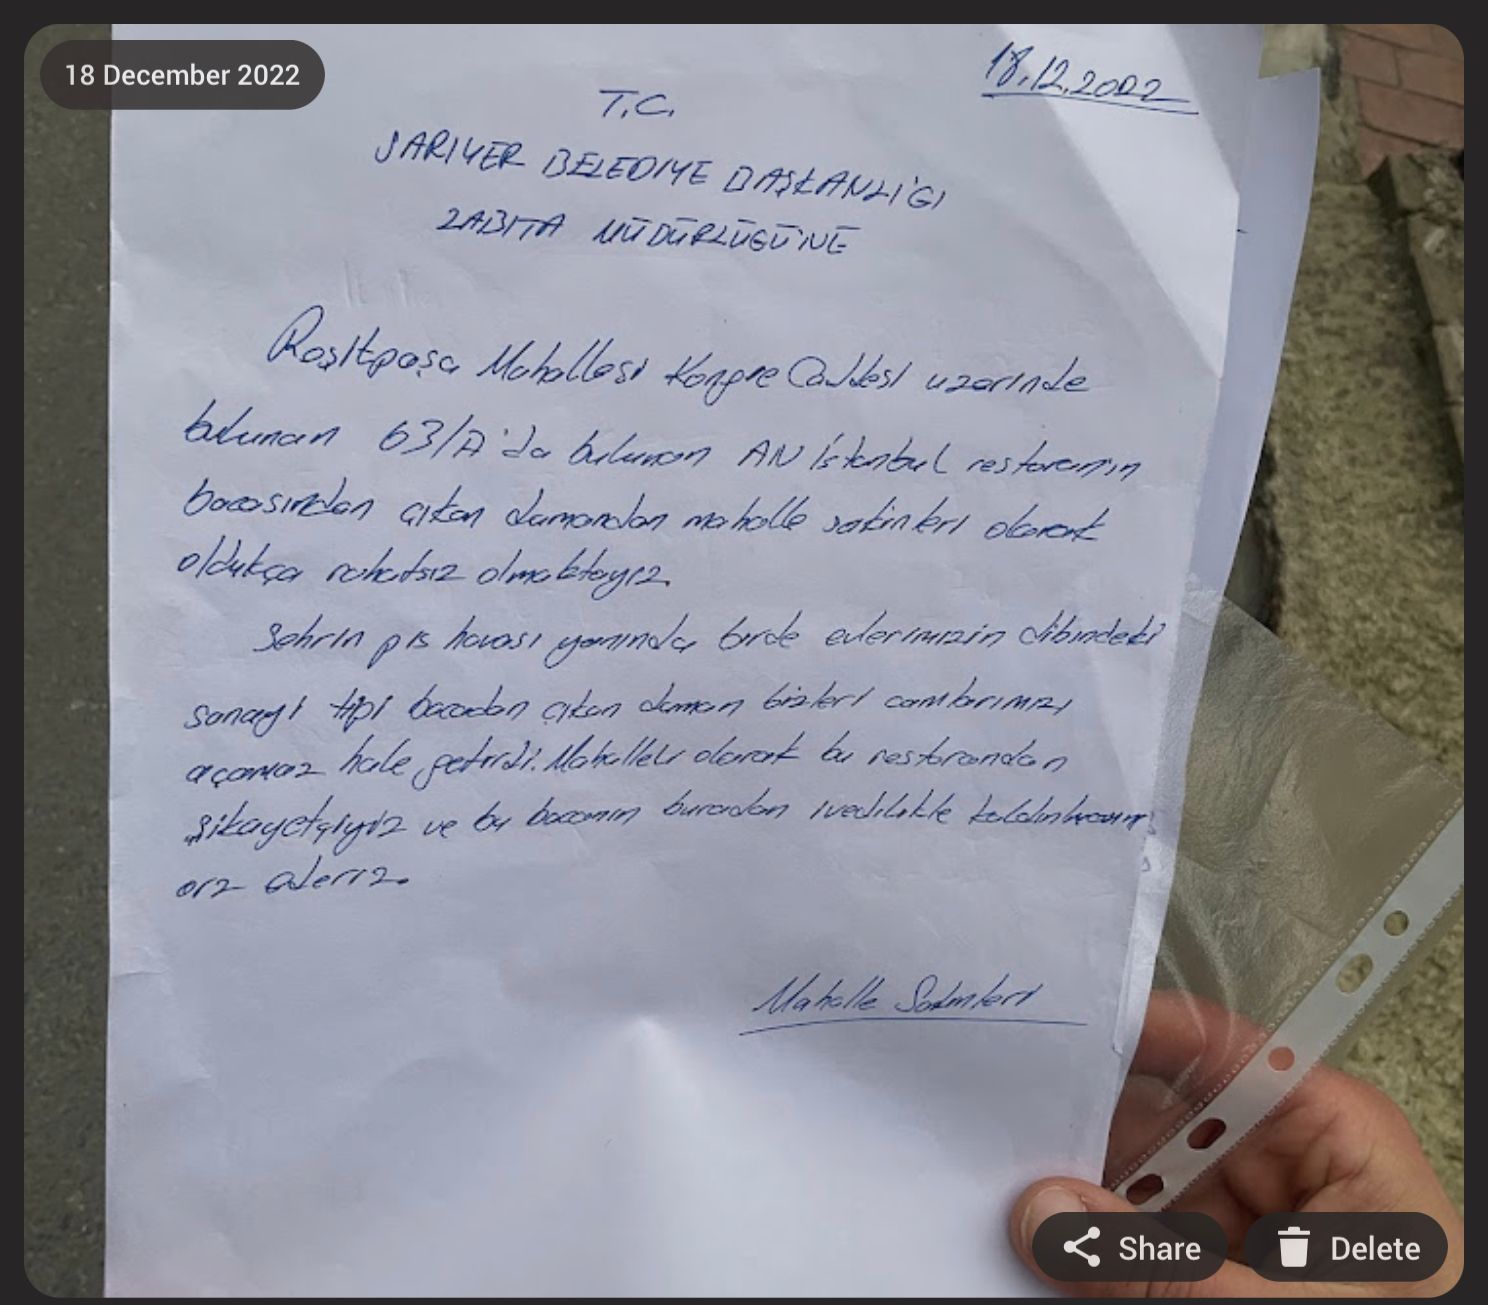 18 December 2022
18.12.2022
T.C.
SARIYER BELEDİYE BAŞKANLIĞI
ZABITA MÜDÜRLÜĞÜ'NE
Reşitpaşa Mahallesi Kongre Caddesi üzerinde
bulunan 63/A'da bulunan AN İstanbul restoranın
bacasından çıkan dumandan mahalle sakinleri olarak
oldukça rahatsız olmaktayız.
Şehrin pis havası yanında birde evlerimizin dibindeki
sanayi tipi bacadan çıkan duman bizleri camlarımızı
açamaz hale getirdi. Mahalleli olarak bu restorandan
şikayetçiyiz ve bu bacanın buradan ivedilikle kaldırılmasını
arz ederiz.
Mahalle Sakinleri
Share
Delete